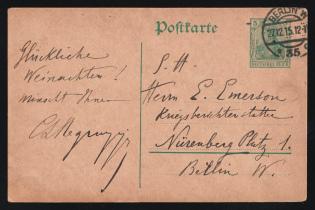 Postkarte
BERLIN W
27.12.15.12-1
35
DEUTSCHES REICH
Glückliche
Weinachten!
wünscht Ihnen
S. H.
Herrn E. Emerson
Kriegsberichterstatter
Nürenberg Platz 1.
Berlin W.